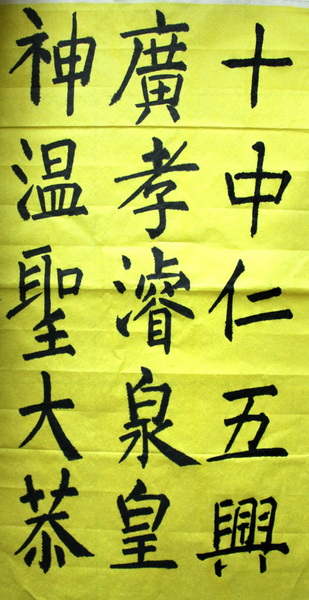 十中仁五興
廣孝濬泉皇
神温聖大恭